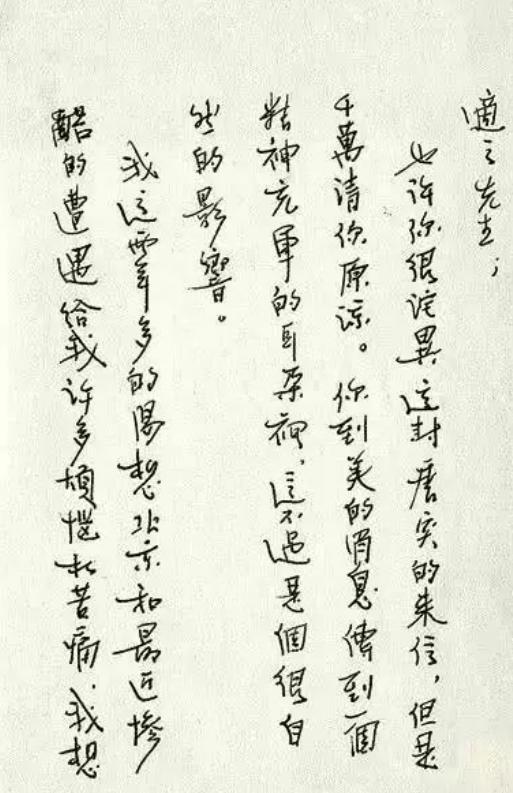 適之先生;
也許你很詫異這封唐突的來信,但是
千萬請你原諒。你到美的消息傳到一個
精神充軍的耳朵裡,這不過是個很自
然的影響。
我這兩年多的渴想北京和最近慘
酷的遭遇給我許多煩惱和苦痛.我想